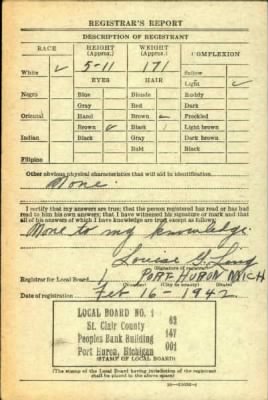 REGISTRAR'S REPORT
DESCRIPTION OF REGISTRANT
RACE HEIGHT (Approx.) WEIGHT (Approx.) COMPLEXION
White ✓ 5-11 171 Sallow
EYES HAIR Light ✓
Negro Blue Blonde Ruddy
Gray Red Dark
Oriental Hazel Brown Freckled
Brown Black Light brown
Indian Black Gray Dark brown
Bald Black
Filipino
Other obvious physical characteristics that will aid in identification
None.
I certify that my answers are true; that the person registered has read or has had
read to him his own answers; that I have witnessed his signature or mark and that
all of his answers of which I have knowledge are true, except as follows:
None to my knowledge.
Louise G. Ling
(Signature of registrar)
Registrar for Local Board 1 PORT HURON MICH
(Number) (City or county) (State)
Date of registration Feb 16-1942
LOCAL BOARD NO. 1 63
St. Clair County 147
Peoples Bank Building 001
Port Huron, Michigan
(STAMP OF LOCAL BOARD)
(The stamp of the Local Board having jurisdiction of the registrant
shall be placed in the above space.)